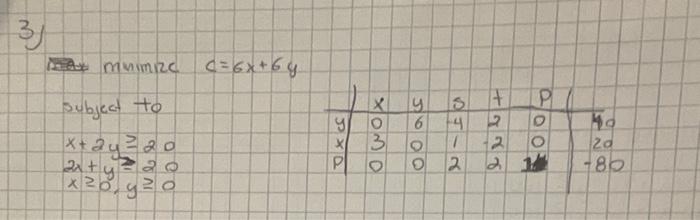 3)
minimize c=6x+6y
subject to
x+2y≥20
2x+y≥20
x≥0, y≥0
x y s t P
y 0 6 -4 2 0 40
x 3 0 1 -2 0 20
P 0 0 2 2 -80